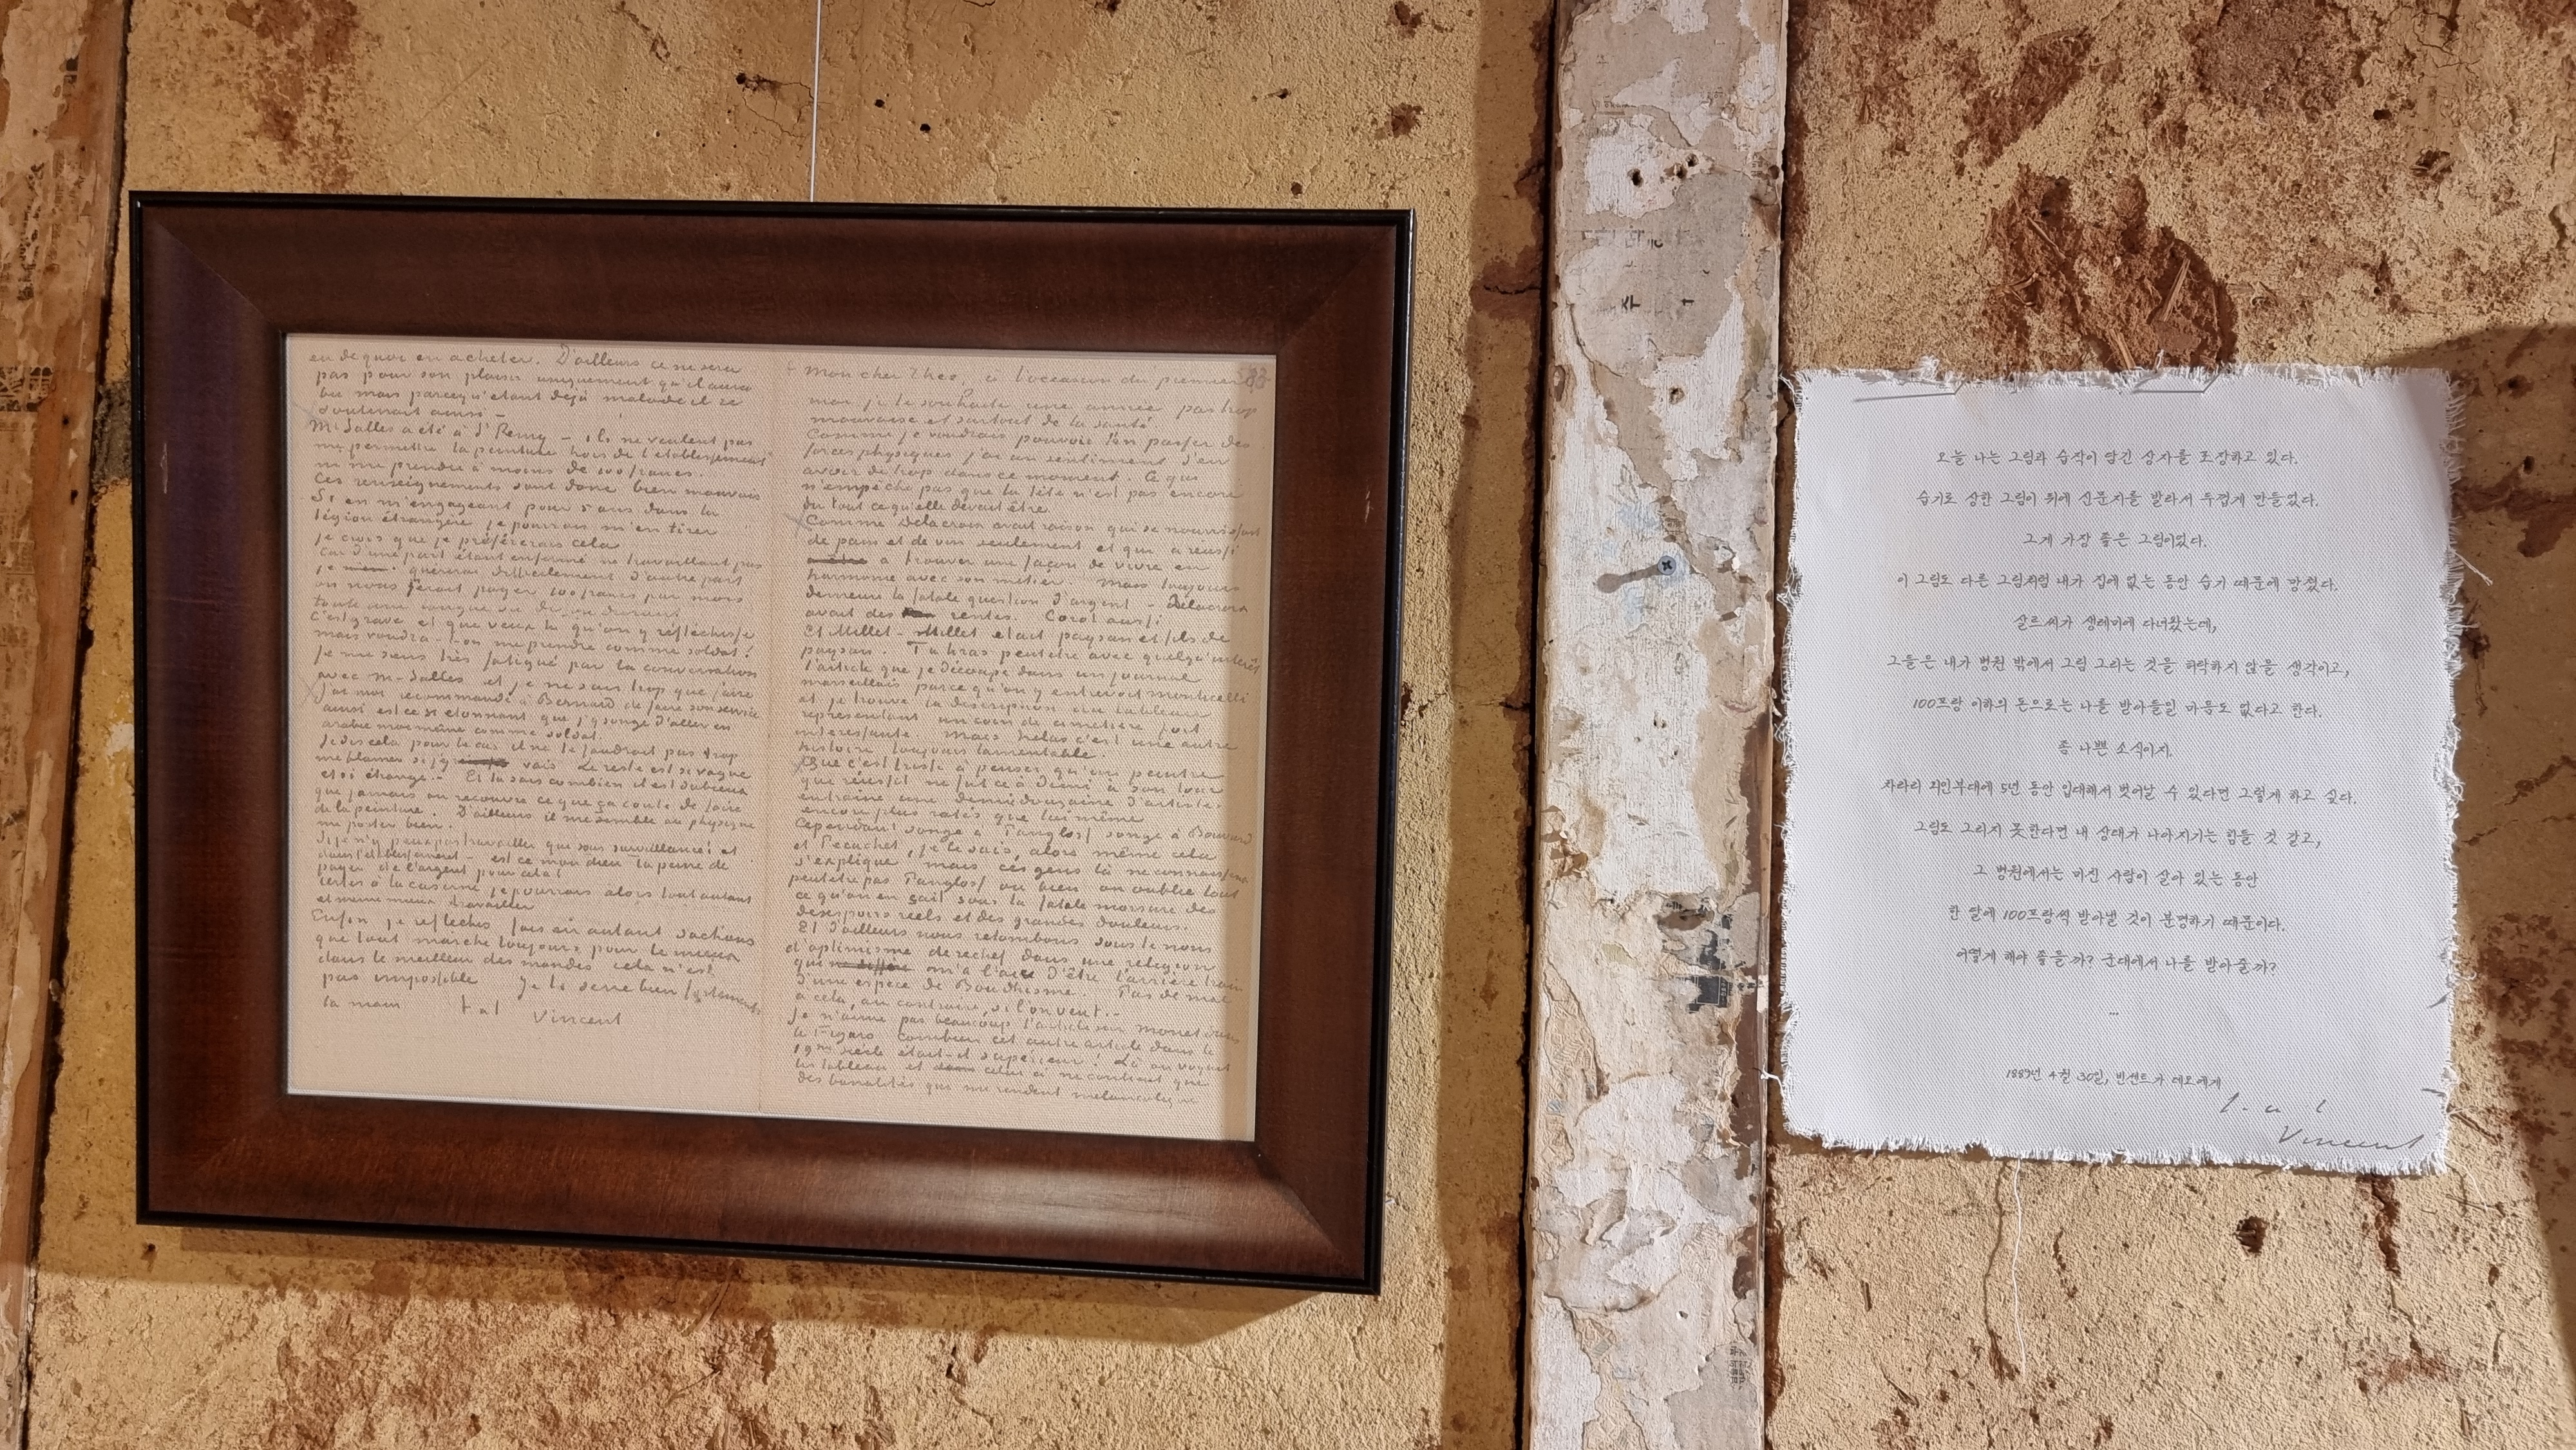 en de quoi en acheter. D'ailleurs ce ne sera
pas pour son plaisir uniquement qu'il aura
bu mais parcequ'étant déjà malade il se
soutenait ainsi –
M. Salles a été à St Remy – ils ne veulent pas
me permettre la peinture hors de l'établissement
ni me prendre à moins de 100 francs.
Ces renseignements sont donc bien mauvais
Si en m'engageant pour 5 ans dans la
légion étrangère je pourrais m'en tirer
je crois que je préférerais cela
Car d'une part étant enfermé ne travaillant pas
je guérirai difficilement d'autre part
on nous ferait payer 100 francs par mois
toute une longue vie de fou durant.
C'est grave et que veux tu qu'on y réfléchisse
mais voudra-t-on me prendre comme soldat?
Je me sens très fatigué par la conversation
avec M. Salles et je ne sais trop que faire
J'ai moi recommandé à Bernard de faire son service
ainsi est ce si étonnant que j'y songe d'aller en
arabie moi même comme soldat.
Je dis cela pour le cas il ne le faudrait pas trop
me blamer si j'y vais. Le reste est si vague
et si étrange. Et tu sais combien il est dubieux
que jamais on recouvre ce que ça coute de faire
de la peinture. D'ailleurs il me semble au physique
me porter bien.
Si je n'y peux pas travailler que sous surveillance! et
dans l'établissement – est ce mon dieu la peine de
payer de l'argent pour cela!
Certes à la caserne je pourrais alors tout autant
et même mieux travailler
Enfin je réfléchis fais en autant sachons
que tout marche toujours pour le mieux
dans le meilleur des mondes cela n'est
pas impossible Je te serre bien fortement
la main t. à t.
Vincent
Mon cher Theo, à l'occasion du premier
mai je te souhaite une année pas trop
mauvaise et surtout de la santé
Comme je voudrais pouvoir t'en passer des
forces physiques j'ai un sentiment d'en
avoir de trop dans ce moment. Ce qui
n'empêche pas que la tête n'est pas encore
du tout ce qu'elle devait être.
Comme Delacroix avait raison qui se nourrissait
de pain et de vin seulement et qui a réussi
à trouver une façon de vivre en
harmonie avec son métier. Mais toujours
demeure la fatale question d'argent – Delacroix
avait des rentes. Corot aussi
Et Millet – Millet était paysan et fils de
paysan. Tu liras peutêtre avec quelqu'intérêt
l'article que je découpe dans un journal
marseillais parce qu'on y entrevoit Monticelli
et je trouve la description du tableau
représentant un coin de cimetière fort
interessante Mais hélas c'est une autre
histoire toujours lamentable.
Que c'est triste à penser qu'un peintre
qui réussit ne fut ce à demi à son tour
entraine une demidouzaine d'artistes
encore plus ratés que lui même
Cependant songe à Panglos songe à Bouvard
et Pecuchet, je le sais, alors même cela
s'explique mais ces gens là ne connaissent
peutêtre pas Panglos ou bien on oublie tout
ce qu'on en sait sous la fatale morsure des
desespoirs réels et des grandes douleurs.
Et d'ailleurs nous retombons sous le nom
d'optimisme derechef dans une religion
qui m'a l'air d'être l'arrière train
d'une espèce de Boudhisme. Pas de mal
à cela, au contraire, si l'on veut.
Je n'aime pas beaucoup l'article sur Monet dans
le Figaro Combien cet autre article dans le
19me siècle était-il supérieur! Là on voyait
les tableaux et celui ci ne contient que
des banalités qui me rendent mélancolique
오늘 나는 그림과 습작이 담긴 상자를 포장하고 있다.
습기로 상한 그림이 위에 신문지를 발라서 두껍게 만들었다.
그게 가장 좋은 그림이었다.
이 그림도 다른 그림처럼 내가 집에 없는 동안 습기 때문에 망쳤다.
살르 씨가 생레미에 다녀왔는데,
그들은 내가 병원 밖에서 그림 그리는 것을 허락하지 않을 생각이고,
100프랑 이하의 돈으로는 나를 받아들일 마음도 없다고 한다.
좀 나쁜 소식이지.
차라리 외인부대에 5년 동안 입대해서 벗어날 수 있다면 그렇게 하고 싶다.
그림도 그리지 못한다면 내 상태가 나아지기는 힘들 것 같고,
그 병원에서는 미친 사람이 살아 있는 동안
한 달에 100프랑씩 받아낼 것이 분명하기 때문이다.
어떻게 해야 좋을까? 군대에서 나를 받아줄까?
...
1889년 4월 30일, 빈센트가 테오에게
t. à t.
Vincent